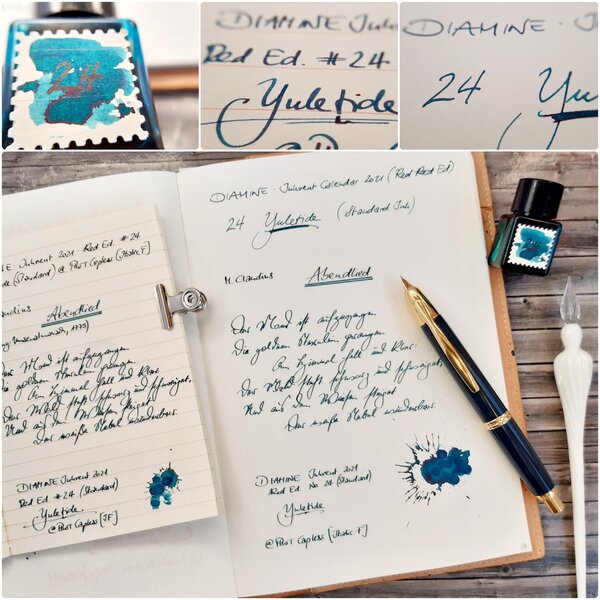 24
DIAMINE Inkv
Red Ed. #24
Yuletide
DIAMINE · I
24 Yu
DIAMINE · Inkvent Calendar 2021 (Red Ed)
24 Yuletide (Standard Ink)
M. Claudius Abendlied
Der Mond ist aufgegangen
Die goldnen Sternlein prangen
Am Himmel hell und klar.
Der Wald steht schwarz und schweiget,
Und aus den Wiesen steiget
Der weiße Nebel wunderbar.
DIAMINE Inkvent 2021
Red Ed. No 24 (Standard)
Yuletide
@Pilot Capless [Italic F]
NE · Inkvent 2021 Red Ed. #24
(Standard) @ Pilot Capless [Italic F]
udius Abendlied
1779)
Der Mond ist aufgegangen
goldnen Sternlein prangen
Am Himmel hell und klar.
Der Wald steht schwarz und schweiget,
Und aus den Wiesen steiget
Der weiße Nebel wunderbar.
DIAMINE Inkvent 2021
Red Ed #24 (Standard)
Yuletide
@Pilot Capless [IF]
24